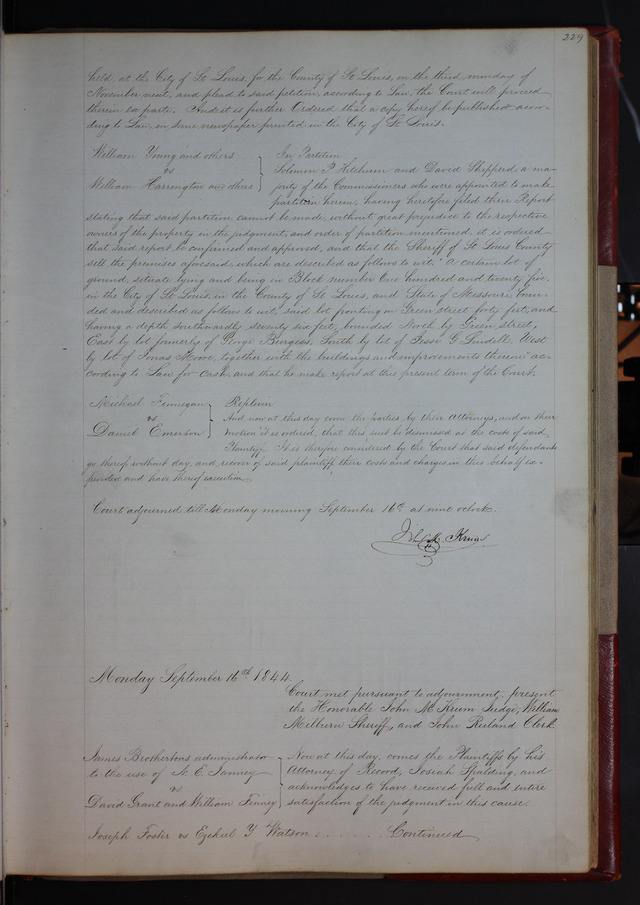 229
held, at the City of St Louis, for the County of St Louis, on the third monday of
November next, and plead to said petition, according to Law, the Court will proceed
therein ex parte. And it is further Ordered that a copy hereof be published accor-
ding to Law, in some newspaper printed in the City of St Louis.
William Young and others
vs
William Harrington and others
In Partition
Solomon P. Ketchum and David Shepperd a ma-
jority of the Commissioners who were appointed to make
partition herein, having heretofore filed their Report
stating that said partition cannot be made, without great prejudice to the respective
owners of the property in the judgment, and order of partition mentioned, it is ordered
that said report be confirmed and approved, and that the Sheriff of St Louis County
sell the premises aforesaid, which are described as follows to wit: A certain lot of
ground, situate lying and being in Block number One hundred and twenty five,
in the City of St Louis, in the County of St Louis, and State of Missouri, boun-
ded and described as follows to wit, said lot fronting on Green street forty feet, and
having a depth southwardly seventy six feet, bounded North by Green street,
East by lot formerly of George Burgess, South by lot of Jesse G Lindell, West
by lot of Jonas Moore, together with the buildings and improvements thereon" ac-
cording to Law for Cash, and that he make report at this present term of the Court.
Michael Finnegan
vs
Daniel Emerson
Replevin
And now at this day come the parties by their Attorneys, and on their
motion it is ordered, that this suit be dismissed at the costs of said
Plaintiff. It is therefore considered by the Court that said defendant
go thereof without day, and recover of said plaintiff their costs and charges in this behalf ex-
pended and have thereof execution.
Court adjourned till Monday morning September 16th at nine oclock.
John M. Krum
Monday September 16th 1844.
Court met pursuant to adjournment, present
the Honorable John M. Krum Judge, William
Milburn Sheriff, and John Ruland Clerk
James Brotherton administrator
to the use of N. E. Janney
vs
David Grant and William Finney
Now at this day, comes the Plaintiffs by his
Attorney of Record, Josiah Spalding, and
acknowledges to have received full and entire
satisfaction of the judgment in this cause.
Joseph Foster vs Ezekiel Y Watson . . . . . . . Continued